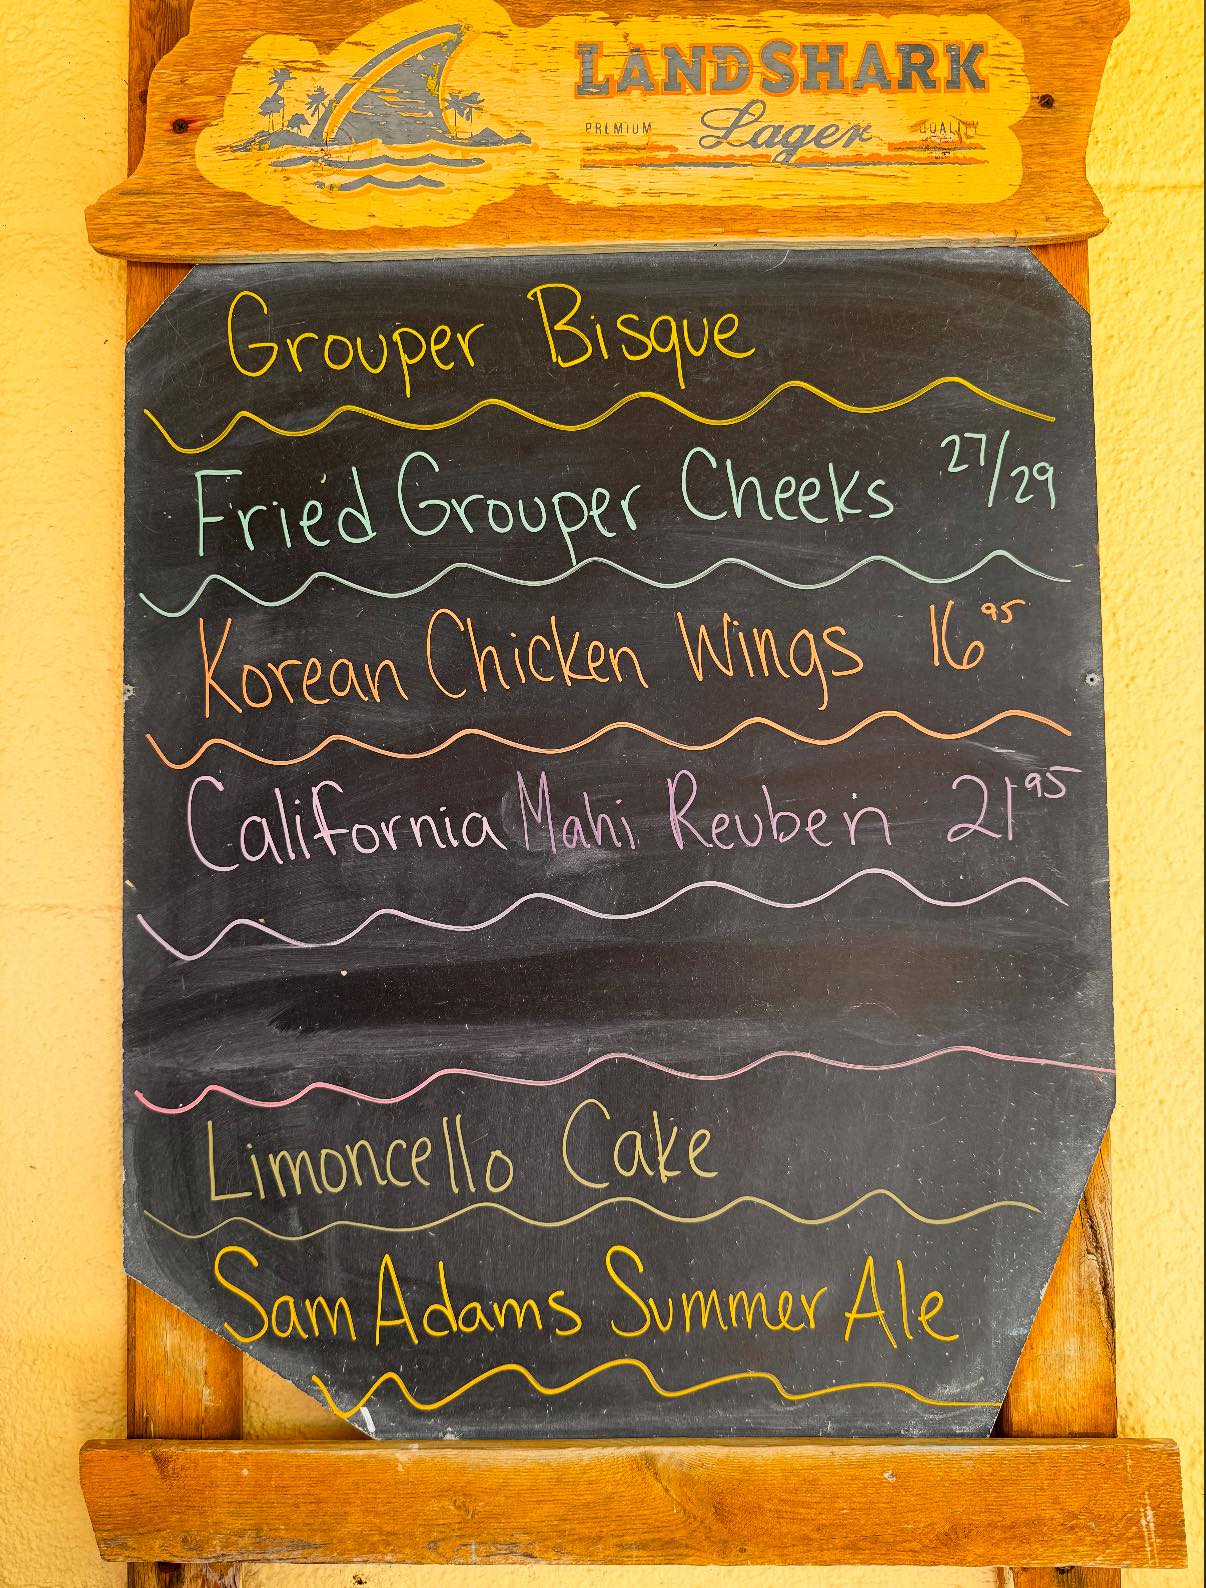 LANDSHARK
PREMIUM Lager QUALITY
Grouper Bisque
Fried Grouper Cheeks 27/29
Korean Chicken Wings 16 95
California Mahi Reuben 21 95
Limoncello Cake
Sam Adams Summer Ale